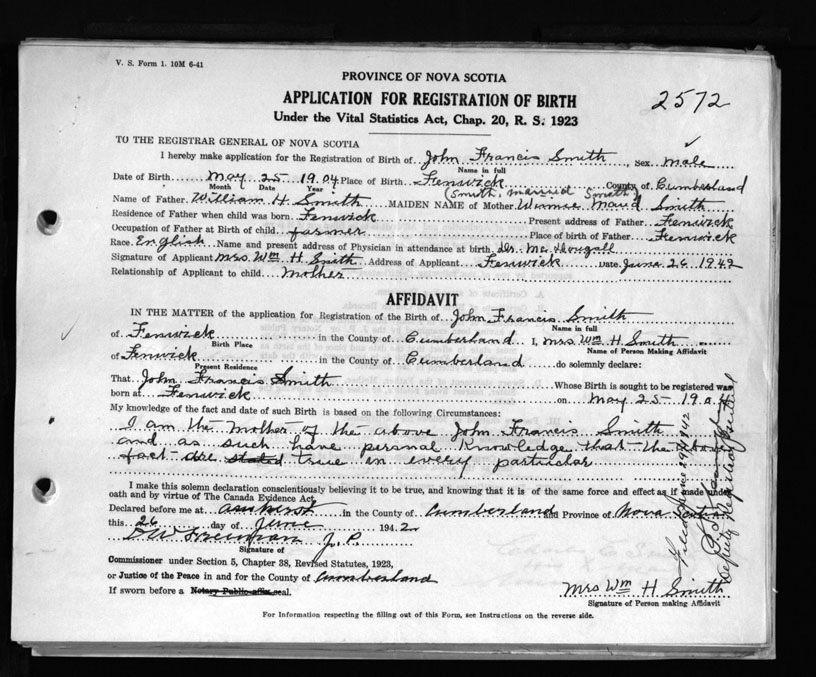 V. S. Form 1. 10M 6-41
PROVINCE OF NOVA SCOTIA
APPLICATION FOR REGISTRATION OF BIRTH
2572
Under the Vital Statistics Act, Chap. 20, R. S. 1923
TO THE REGISTRAR GENERAL OF NOVA SCOTIA
I hereby make application for the Registration of Birth of John Francis Smith, Sex Male
Name in full
Date of Birth May 25 1904 Place of Birth Fenwick County of Cumberland
Month Date Year (Smith, married Smith)
Name of Father William H Smith MAIDEN NAME of Mother Winnie Maud Smith
Residence of Father when child was born Fenwick Present address of Father Fenwick
Occupation of Father at Birth of child farmer Place of birth of Father Fenwick
Race English Name and present address of Physician in attendance at birth Dr. McDougall
Signature of Applicant Mrs. Wm H. Smith Address of Applicant Fenwick Date June 26 1942
Relationship of Applicant to child Mother
AFFIDAVIT
IN THE MATTER of the application for Registration of the Birth of John Francis Smith
Name in full
of Fenwick in the County of Cumberland I, Mrs Wm H. Smith
Birth Place Name of Person Making Affidavit
of Fenwick in the County of Cumberland do solemnly declare:
Present Residence
That John Francis Smith Whose Birth is sought to be registered was
born at Fenwick on May 25 1904
My knowledge of the fact and date of such Birth is based on the following Circumstances:
I am the Mother of the above John Francis Smith
and as such have personal Knowledge that the above
fact are stated true in every particular
I make this solemn declaration conscientiously believing it to be true, and knowing that it is of the same force and effect as if made under
oath and by virtue of The Canada Evidence Act.
Declared before me at Amherst in the County of Cumberland and Province of Nova Scotia
this 26 day of June 1942
J. P.
Signature of
Commissioner under Section 5, Chapter 38, Revised Statutes, 1923,
or Justice of the Peace in and for the County of Cumberland
If sworn before a Notary Public affix seal.
Mrs Wm H. Smith
Signature of Person making Affidavit
For Information respecting the filling out of this Form, see Instructions on the reverse side.
Deputy Registrar General